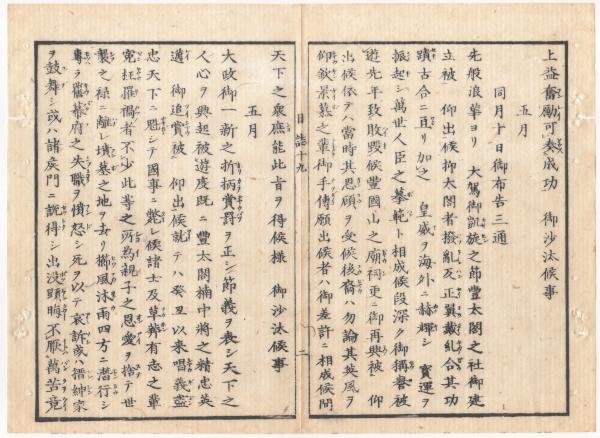 上益奮勵可奏成功 御沙汰候事
五月
同月十日御布告三通
先般浪華ヨリ 大駕御凱旋之節豐太閤之社御建
立被 仰出候抑太閤者撥亂反正翼戴糺合其功
蹟古今ニ亘リ加之 皇威ヲ海外ニ赫輝シ 寳運ヲ
振起シ萬世人臣之摹範ト相成候段深ク御稱譽被
遊先年致敗毀候豐國山之廟祠更ニ御再興被 仰
出候依テハ當時其恩顧ヲ受候後裔ハ勿論其英風ヲ
仰欽景慕之輩御手傳願出候者ハ御差許ニ相成候間
日誌十九
天下之衆庶能此旨ヲ得候樣 御沙汰候事
五月
大政御一新之折柄賞罰ヲ正シ節義ヲ表シ天下之
人心ヲ興起被遊度既ニ豐太閤楠中將之精忠英
邁 御追賞被 仰出候就テハ癸丑以來唱義盡
忠天下ニ魁シテ國事ニ斃レ候諸士及草莽有志之輩
寃枉罹禍者不少此等之所為親子之恩愛ヲ捨テ世
襲之禄ニ離レ墳墓之地ヲ去リ櫛風沐雨四方ニ潛行シ
專ラ舊幕府之失職ヲ憤怒シ死ヲ以テ哀訴或ハ搢紳家
ヲ鼓舞シ或ハ諸侯門ニ説得シ出没顯晦不厭萬苦竟